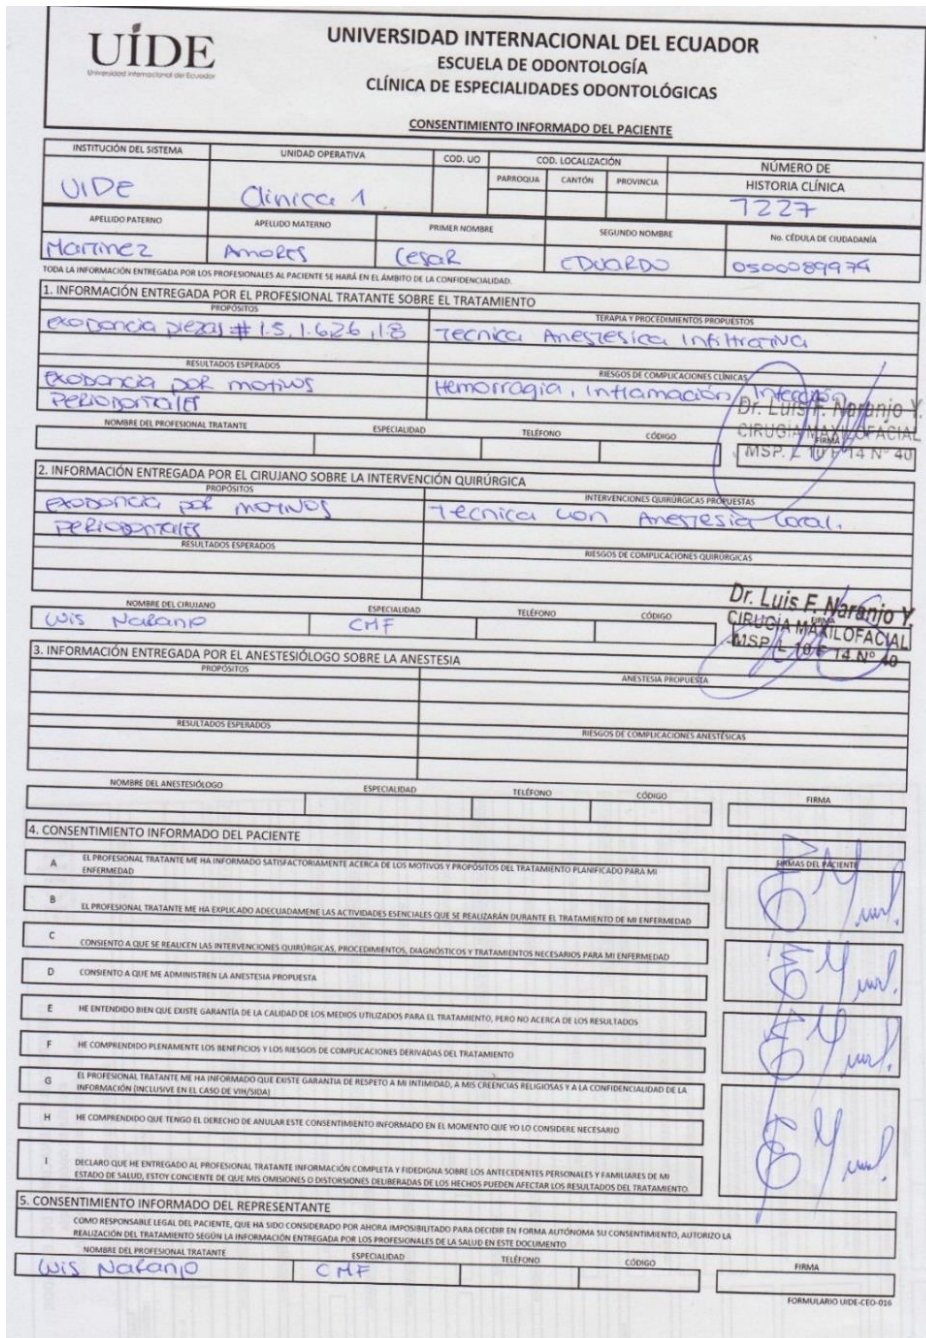 UIDE
Universidad Internacional del Ecuador
UNIVERSIDAD INTERNACIONAL DEL ECUADOR
ESCUELA DE ODONTOLOGÍA
CLÍNICA DE ESPECIALIDADES ODONTOLÓGICAS
CONSENTIMIENTO INFORMADO DEL PACIENTE
INSTITUCIÓN DEL SISTEMA UNIDAD OPERATIVA COD. UO COD. LOCALIZACIÓN NÚMERO DE
PARROQUIA CANTÓN PROVINCIA HISTORIA CLÍNICA
UIDE Clinica 1 7227
APELLIDO PATERNO APELLIDO MATERNO PRIMER NOMBRE SEGUNDO NOMBRE No. CÉDULA DE CIUDADANÍA
Martinez Amores Cesar EDUARDO 0500089974
TODA LA INFORMACIÓN ENTREGADA POR LOS PROFESIONALES AL PACIENTE SE HARÁ EN EL ÁMBITO DE LA CONFIDENCIALIDAD.
1. INFORMACIÓN ENTREGADA POR EL PROFESIONAL TRATANTE SOBRE EL TRATAMIENTO
PROPÓSITOS TERAPIA Y PROCEDIMIENTOS PROPUESTOS
exodoncia piezas # 1.5, 1.6 26, 1.8 Tecnica Anestesica Infiltrativa
RESULTADOS ESPERADOS RIESGOS DE COMPLICACIONES CLÍNICAS
Exodoncia por motivos Hemorragia, Inflamación,
PERIODONTALES
Dr. Luis F. Naranjo Y.
CIRUGIA MAXILOFACIAL
MSP. L 10 F 14 Nº 40
NOMBRE DEL PROFESIONAL TRATANTE ESPECIALIDAD TELÉFONO CÓDIGO FIRMA
2. INFORMACIÓN ENTREGADA POR EL CIRUJANO SOBRE LA INTERVENCIÓN QUIRÚRGICA
PROPÓSITOS INTERVENCIONES QUIRÚRGICAS PROPUESTAS
exodoncia por motivos Tecnica con Anestesia Local.
PERIODONTALES
RESULTADOS ESPERADOS RIESGOS DE COMPLICACIONES QUIRÚRGICAS
NOMBRE DEL CIRUJANO ESPECIALIDAD TELÉFONO CÓDIGO FIRMA
Luis Naranjo CMF
Dr. Luis F. Naranjo Y.
CIRUGIA MAXILOFACIAL
MSP. L 10 F 14 Nº 40
3. INFORMACIÓN ENTREGADA POR EL ANESTESIÓLOGO SOBRE LA ANESTESIA
PROPÓSITOS ANESTESIA PROPUESTA
RESULTADOS ESPERADOS RIESGOS DE COMPLICACIONES ANESTÉSICAS
NOMBRE DEL ANESTESIÓLOGO ESPECIALIDAD TELÉFONO CÓDIGO FIRMA
4. CONSENTIMIENTO INFORMADO DEL PACIENTE
FIRMAS DEL PACIENTE
A EL PROFESIONAL TRATANTE ME HA INFORMADO SATISFACTORIAMENTE ACERCA DE LOS MOTIVOS Y PROPÓSITOS DEL TRATAMIENTO PLANIFICADO PARA MI
ENFERMEDAD
B EL PROFESIONAL TRATANTE ME HA EXPLICADO ADECUADAMENE LAS ACTIVIDADES ESENCIALES QUE SE REALIZARÁN DURANTE EL TRATAMIENTO DE MI ENFERMEDAD
C CONSIENTO A QUE SE REALICEN LAS INTERVENCIONES QUIRÚRGICAS, PROCEDIMIENTOS, DIAGNÓSTICOS Y TRATAMIENTOS NECESARIOS PARA MI ENFERMEDAD
D CONSIENTO A QUE ME ADMINISTREN LA ANESTESIA PROPUESTA
E HE ENTENDIDO BIEN QUE EXISTE GARANTÍA DE LA CALIDAD DE LOS MEDIOS UTILIZADOS PARA EL TRATAMIENTO, PERO NO ACERCA DE LOS RESULTADOS
F HE COMPRENDIDO PLENAMENTE LOS BENEFICIOS Y LOS RIESGOS DE COMPLICACIONES DERIVADAS DEL TRATAMIENTO
G EL PROFESIONAL TRATANTE ME HA INFORMADO QUE EXISTE GARANTIA DE RESPETO A MI INTIMIDAD, A MIS CREENCIAS RELIGIOSAS Y A LA CONFIDENCIALIDAD DE LA
INFORMACIÓN (INCLUSIVE EN EL CASO DE VIH/SIDA)
H HE COMPRENDIDO QUE TENGO EL DERECHO DE ANULAR ESTE CONSENTIMIENTO INFORMADO EN EL MOMENTO QUE YO LO CONSIDERE NECESARIO
I DECLARO QUE HE ENTREGADO AL PROFESIONAL TRATANTE INFORMACIÓN COMPLETA Y FIDEDIGNA SOBRE LOS ANTECEDENTES PERSONALES Y FAMILIARES DE MI
ESTADO DE SALUD, ESTOY CONCIENTE DE QUE MIS OMISIONES O DISTORSIONES DELIBERADAS DE LOS HECHOS PUEDEN AFECTAR LOS RESULTADOS DEL TRATAMIENTO.
5. CONSENTIMIENTO INFORMADO DEL REPRESENTANTE
COMO RESPONSABLE LEGAL DEL PACIENTE, QUE HA SIDO CONSIDERADO POR AHORA IMPOSIBILITADO PARA DECIDIR EN FORMA AUTÓNOMA SU CONSENTIMIENTO, AUTORIZO LA
REALIZACIÓN DEL TRATAMIENTO SEGÚN LA INFORMACIÓN ENTREGADA POR LOS PROFESIONALES DE LA SALUD EN ESTE DOCUMENTO
NOMBRE DEL PROFESIONAL TRATANTE ESPECIALIDAD TELÉFONO CÓDIGO FIRMA
Luis Naranjo CMF
FORMULARIO UIDE-CEO-016